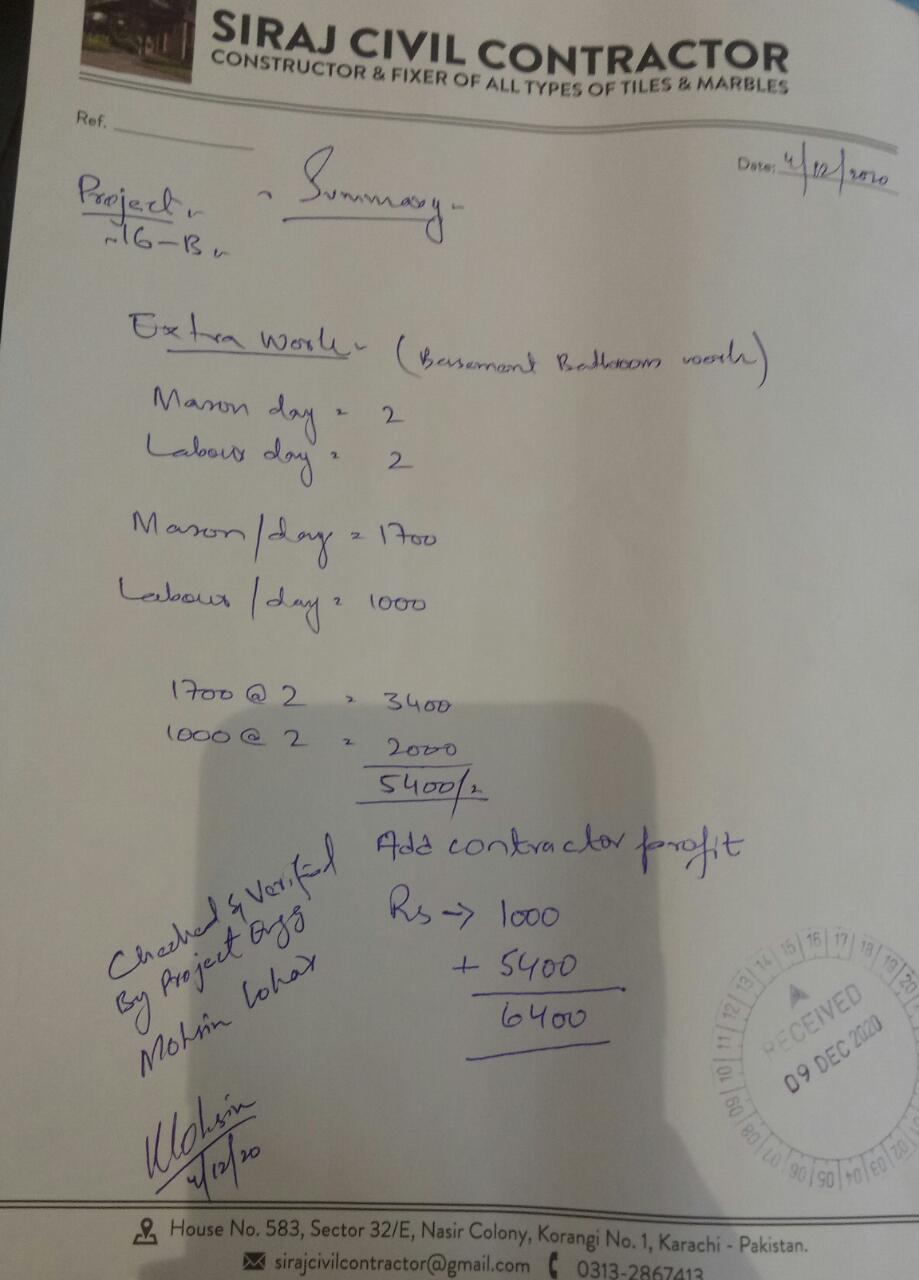 SIRAJ CIVIL CONTRACTOR
CONSTRUCTOR & FIXER OF ALL TYPES OF TILES & MARBLES
Ref.
Date: 4/12/2020
Summary
Project
16-B
Extra work (Basement Bathroom work)
Mason day = 2
Labour day = 2
Mason/day = 1700
Labour/day = 1000
1700 @ 2 = 3400
1000 @ 2 = 2000
5400/=
Add contractor profit
Rs → 1000
+ 5400
6400
Checked & Verified
By Project Engg
Mohsin Lohar
Mohsin
4/12/20
RECEIVED
09 DEC 2020
01 02 03 04 05 06 07 08 09 10 11 12 13 14 15 16 17 18 19 20
House No. 583, Sector 32/E, Nasir Colony, Korangi No. 1, Karachi - Pakistan.
sirajcivilcontractor@gmail.com 0313-2867413